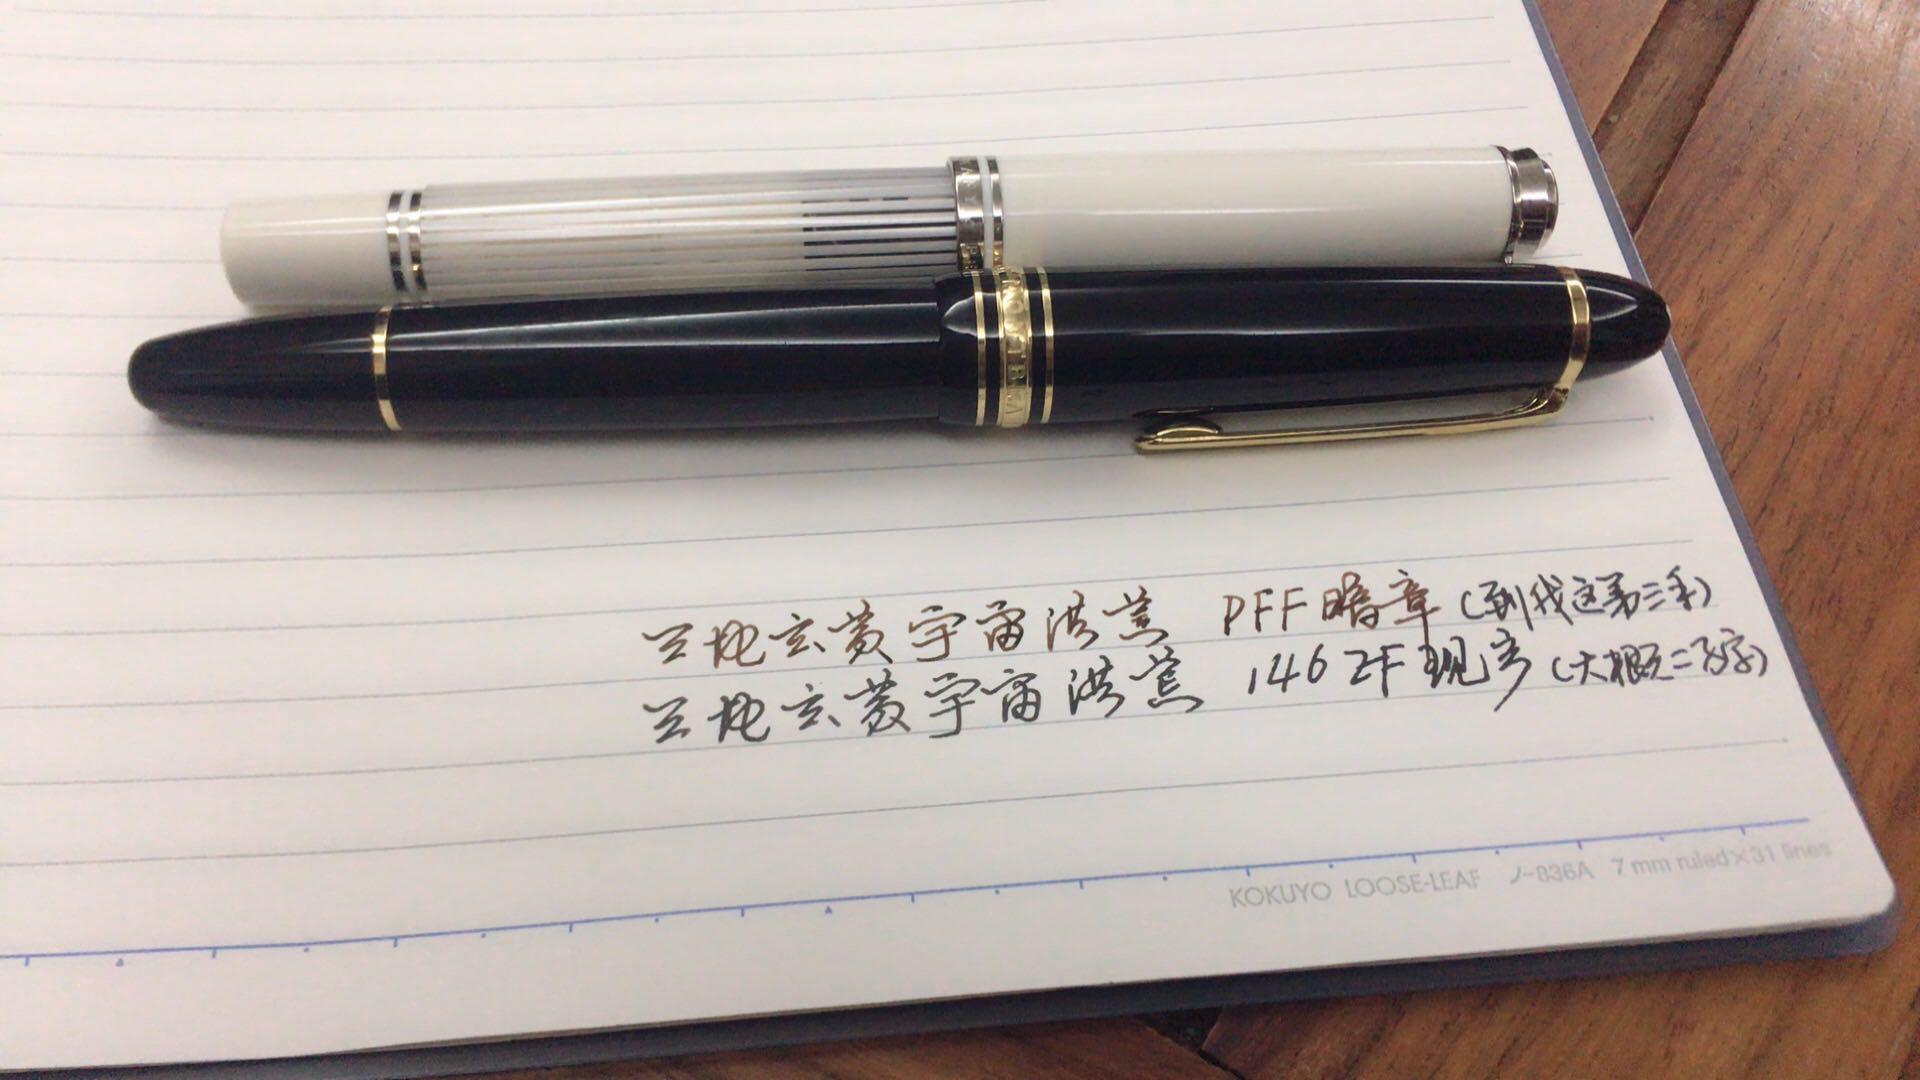 天地玄黄宇宙洪荒 PFF 暗章(到我这第三手)
天地玄黄宇宙洪荒 146 EF 现产(大概二次字)
KOKUYO LOOSE-LEAF ノ-836A 7 mm ruled×31 lines